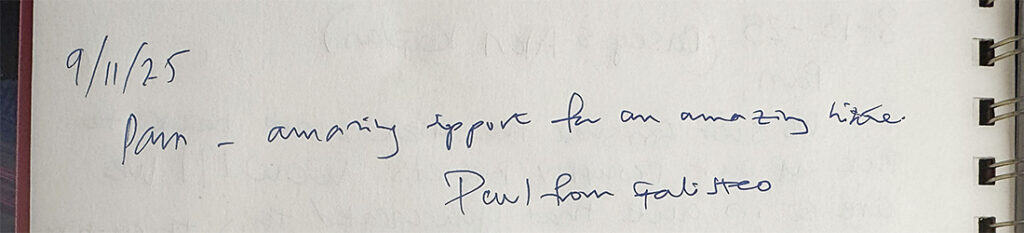 9/11/25
Pam - amazing support for an amazing
Paul from Galisteo